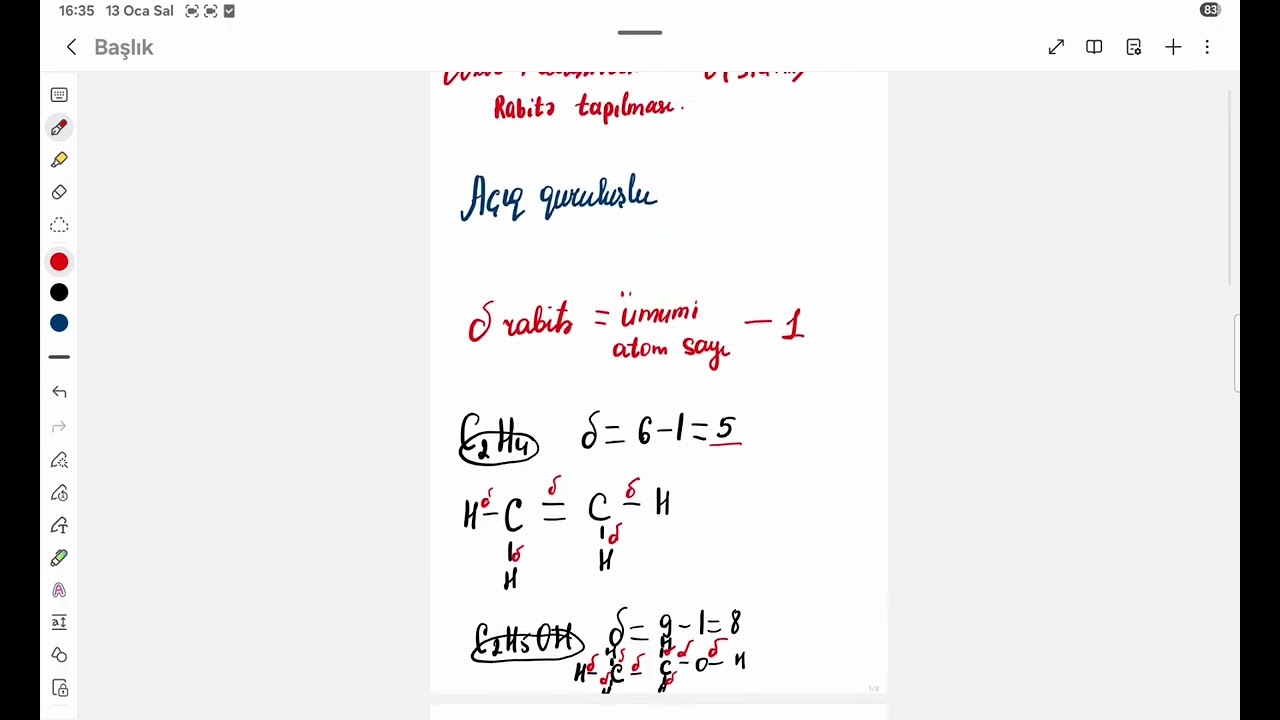 16:35 13 Oca Sal 83
Başlık
Rabitə tapılması.
Açıq quruluşlu
δ rabitə = ümumi atom sayı — 1
C2H4 δ = 6-1=5
H-δ C =δ C -δ H
δ δ
H H
C2H5OH δ = 9-1=8
H H
H-δ C -δ C -δ O -δ H
H H
1/3